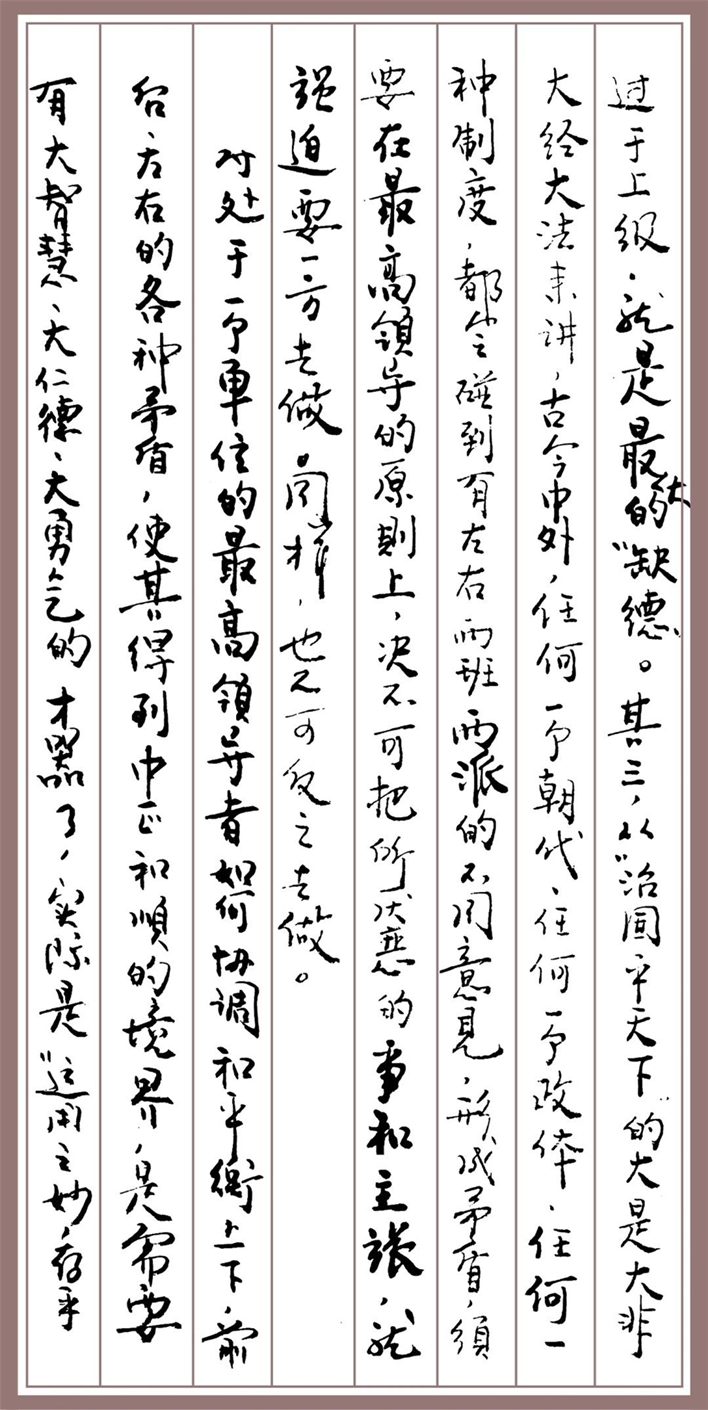 过于上级，就是最大的“缺德”。其三，从“治国平天下”的大是大非
大经大法来讲，古今中外，任何一个朝代、任何一个政体、任何一
种制度，都会碰到有左右两班两派的不同意见，形成矛盾，须
要在最高领导的原则上，决不可把所厌恶的事和主张，就
强迫要一方去做。同样，也不可反之去做。
对处于一个单位的最高领导者如何协调和平衡上下、前
后、左右的各种矛盾，使其得到中正和顺的境界，是需要
有大智慧、大仁德、大勇气的才器了，实际是“运用之妙，存乎